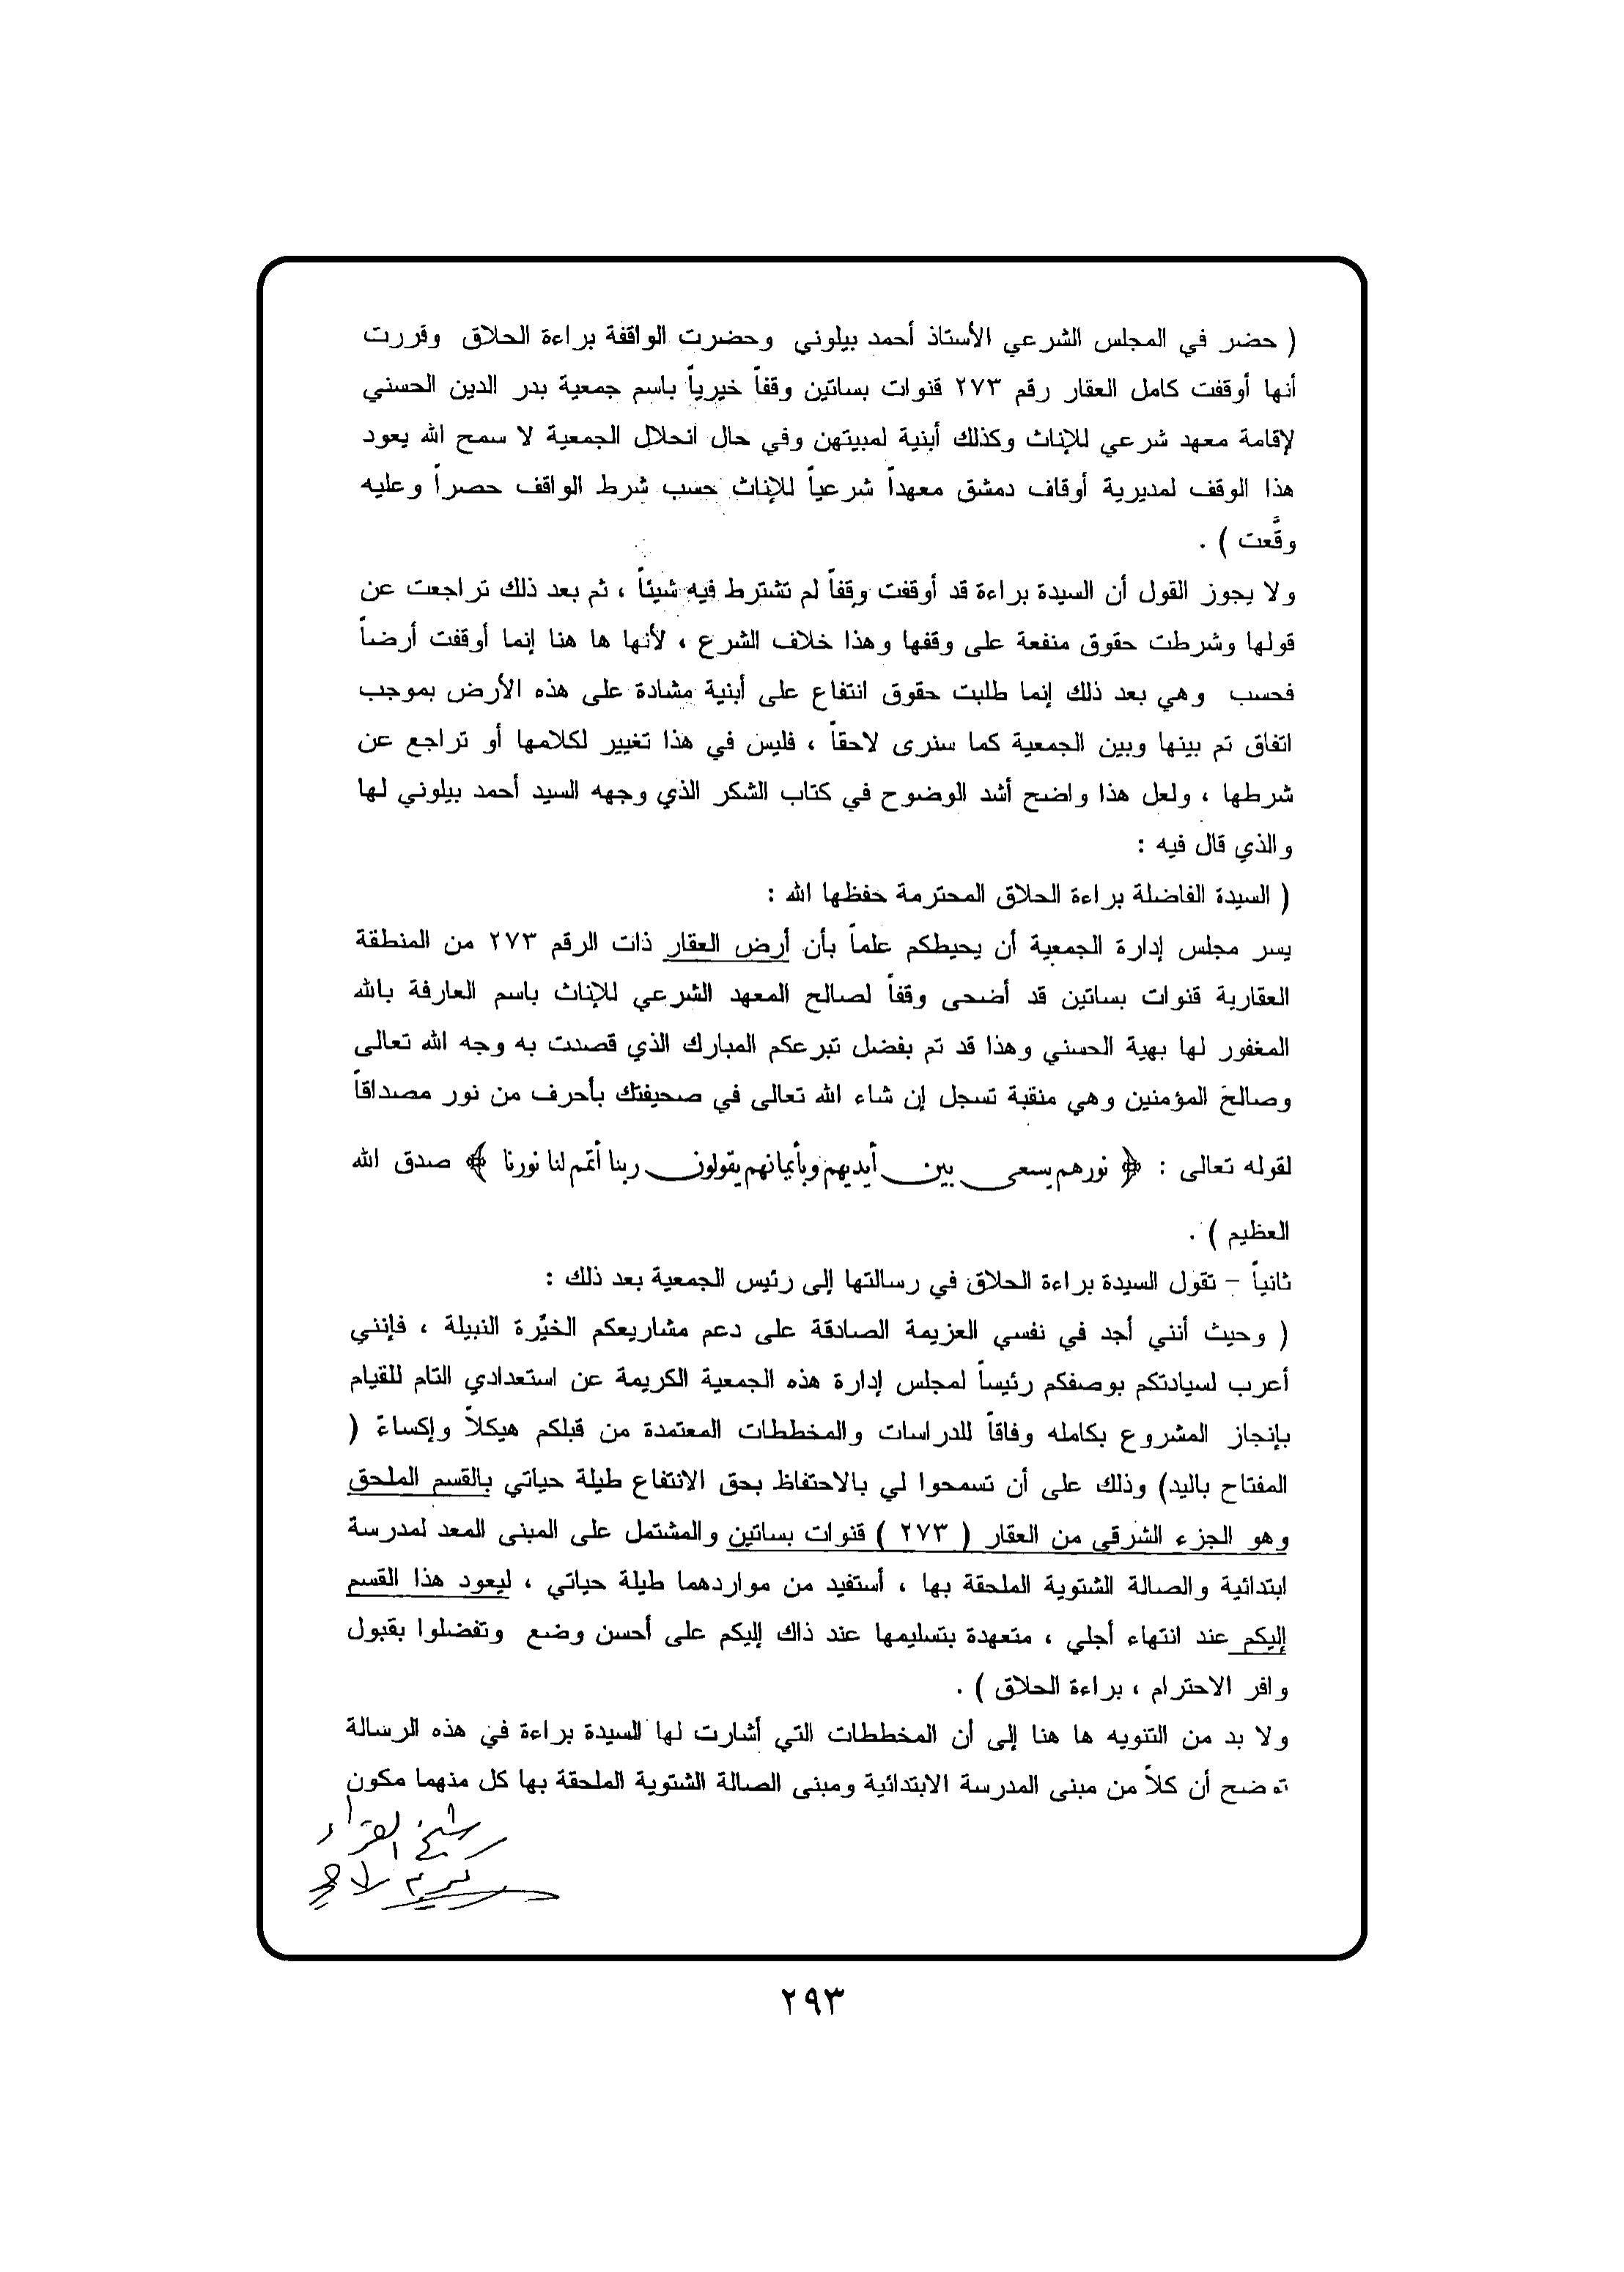 ( حضر في المجلس الشرعي الأستاذ أحمد بيلوني وحضرت الواقفة براءة الحلاق وقررت
أنها أوقفت كامل العقار رقم ٢٧٣ قنوات بساتين وقفاً خيرياً باسم جمعية بدر الدين الحسني
لإقامة معهد شرعي للإناث وكذلك أبنية لمبيتهن وفي حال انحلال الجمعية لا سمح الله يعود
هذا الوقف لمديرية أوقاف دمشق معهداً شرعياً للإناث حسب شرط الواقف حصراً وعليه
وقَّعت ) .
ولا يجوز القول أن السيدة براءة قد أوقفت وقفاً لم تشترط فيه شيئاً ، ثم بعد ذلك تراجعت عن
قولها وشرطت حقوق منفعة على وقفها وهذا خلاف الشرع ، لأنها ها هنا إنما أوقفت أرضاً
فحسب وهي بعد ذلك إنما طلبت حقوق انتفاع على أبنية مشادة على هذه الأرض بموجب
اتفاق تم بينها وبين الجمعية كما سنرى لاحقاً ، فليس في هذا تغيير لكلامها أو تراجع عن
شرطها ، ولعل هذا واضح أشد الوضوح في كتاب الشكر الذي وجهه السيد أحمد بيلوني لها
والذي قال فيه :
( السيدة الفاضلة براءة الحلاق المحترمة حفظها الله :
يسر مجلس إدارة الجمعية أن يحيطكم علماً بأن أرض العقار ذات الرقم ٢٧٣ من المنطقة
العقارية قنوات بساتين قد أضحى وقفاً لصالح المعهد الشرعي للإناث باسم العارفة بالله
المغفور لها بهية الحسني وهذا قد تم بفضل تبرعكم المبارك الذي قصدت به وجه الله تعالى
وصالح المؤمنين وهي منقبة تسجل إن شاء الله تعالى في صحيفتك بأحرف من نور مصداقاً
لقوله تعالى : ﴿ نورهم يسعى بين أيديهم وبأيمانهم يقولون ربنا أتمم لنا نورنا ﴾ صدق الله
العظيم ) .
ثانياً – تقول السيدة براءة الحلاق في رسالتها إلى رئيس الجمعية بعد ذلك :
( وحيث أنني أجد في نفسي العزيمة الصادقة على دعم مشاريعكم الخيِّرة النبيلة ، فإنني
أعرب لسيادتكم بوصفكم رئيساً لمجلس إدارة هذه الجمعية الكريمة عن استعدادي التام للقيام
بإنجاز المشروع بكامله وفاقاً للدراسات والمخططات المعتمدة من قبلكم هيكلاً وإكساءً (
المفتاح باليد) وذلك على أن تسمحوا لي بالاحتفاظ بحق الانتفاع طيلة حياتي بالقسم الملحق
وهو الجزء الشرقي من العقار ( ٢٧٣ ) قنوات بساتين والمشتمل على المبنى المعد لمدرسة
ابتدائية والصالة الشتوية الملحقة بها ، أستفيد من مواردهما طيلة حياتي ، ليعود هذا القسم
إليكم عند انتهاء أجلي ، متعهدة بتسليمها عند ذاك إليكم على أحسن وضع وتفضلوا بقبول
وافر الاحترام ، براءة الحلاق ) .
ولا بد من التنويه ها هنا إلى أن المخططات التي أشارت لها السيدة براءة في هذه الرسالة
توضح أن كلاً من مبنى المدرسة الابتدائية ومبنى الصالة الشتوية الملحقة بها كل منهما مكون
شيخ القراء
٢٩٣